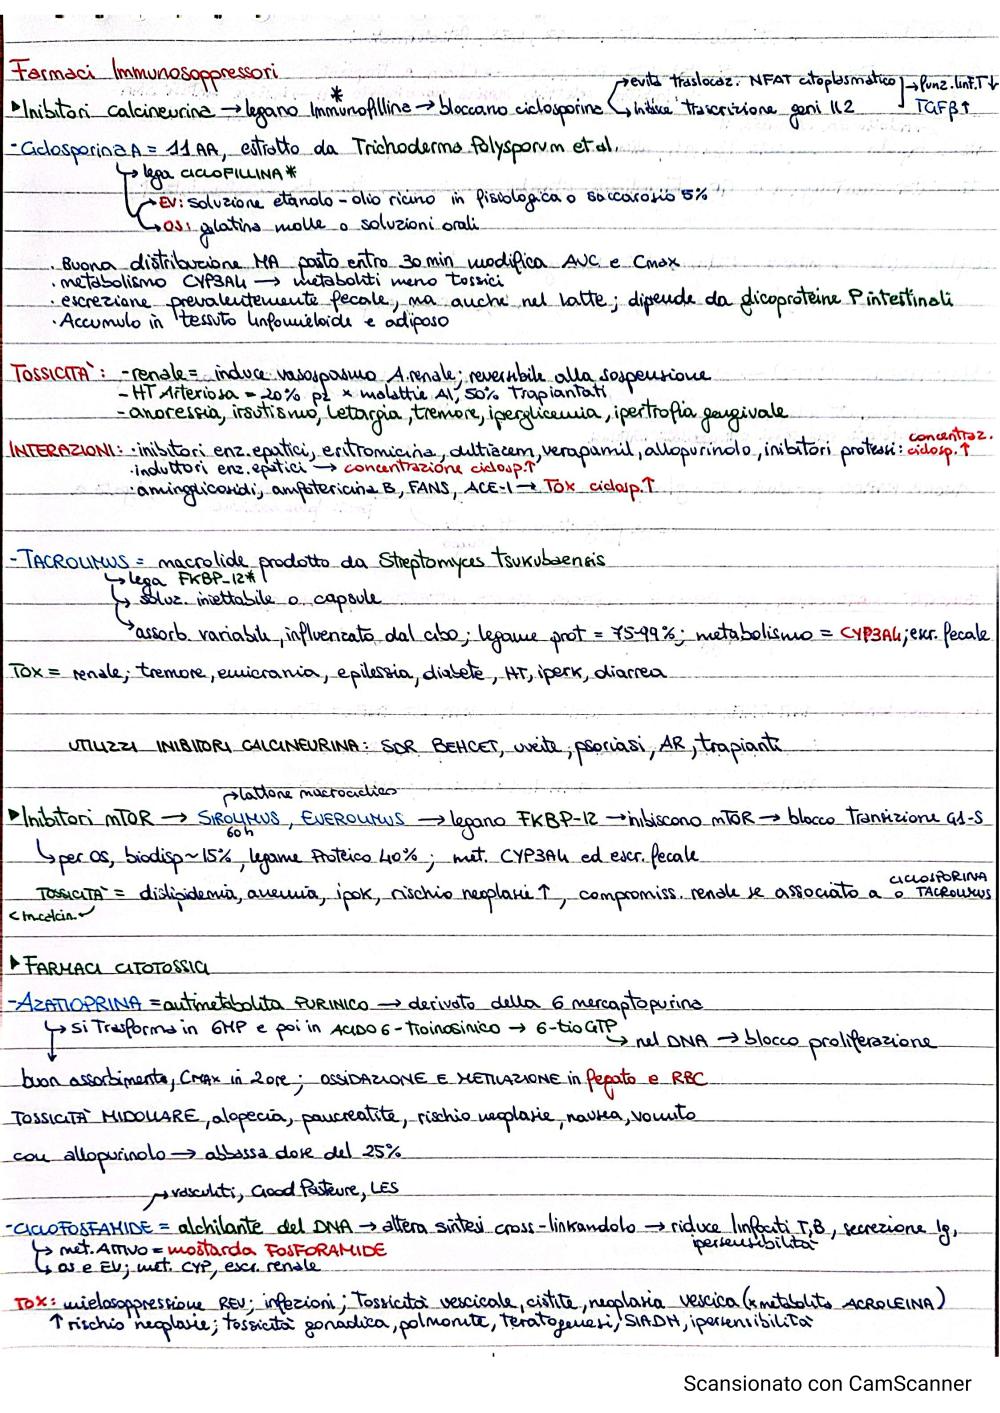 Farmaci Immunosoppressori
▸Inibitori calcineurina → legano Immunofilline* → bloccano ciclosporina
→ evita traslocaz. NFAT citoplasmatico
→ inibisce trascrizione geni IL2
→ funz. linf. T↓
TGFβ↑
-Ciclosporina A = 11 AA, estratto da Trichoderma Polysporum et al.
↳ lega CICLOFILLINA*
→ EV: soluzione etanolo - olio ricino in fisiologica o saccarosio 5%
↳ OS: glatina molle o soluzioni orali
. Buona distribuzione MA pasto entro 30 min modifica AUC e Cmax
· metabolismo CYP3A4 → metaboliti meno tossici
· escrezione prevalentemente fecale, ma anche nel latte; dipende da glicoproteine P intestinali
· Accumulo in tessuto linfomieloide e adiposo
TOSSICITÀ: - renale = induce vasospasmo A. renale; reversibile alla sospensione
- HT Arteriosa = 20% pz x malattie AI, 50% Trapiantati
- anoressia, irsutismo, letargia, tremore, iperglicemia, ipertrofia gengivale
INTERAZIONI: · inibitori enz. epatici, eritromicina, diltiazem, verapamil, allopurinolo, inibitori proteasi: concentraz. ciclosp.↑
· induttori enz. epatici → concentrazione ciclosp.↑
· aminglicosidi, amfotericina B, FANS, ACE-I → Tox ciclosp.↑
- TACROLIMUS = macrolide prodotto da Streptomyces tsukubaensis
↳ lega FKBP-12*
↳ soluz. iniettabile o capsule
↳ assorb. variabile, influenzato dal cibo; legame prot = 75-99%; metabolismo = CYP3A4; escr. fecale
Tox = renale; tremore, emicrania, epilessia, diabete, HT, iperK, diarrea
UTILIZZI INIBITORI CALCINEURINA: SDR BEHCET, uveite, psoriasi, AR, trapianti
→ lattone macrociclico
▸Inibitori mTOR → SIROLIMUS, EVEROLIMUS → legano FKBP-12 → inibiscono mTOR → blocco transizione G1-S
60h
↳ per os, biodisp ~ 15%, legame Proteico 40%; met. CYP3A4 ed escr. fecale
TOSSICITÀ = dislipidemia, anemia, ipoK, rischio neoplasie ↑, compromiss. renale se associato a CICLOSPORINA o TACROLIMUS
< In.calcin.
▸FARMACI CITOTOSSICI
-AZATIOPRINA = antimetabolita PURINICO → derivato della 6 mercaptopurina
↳ si Trasforma in 6MP e poi in ACIDO 6-tioinosinico → 6-tioGTP
↳ nel DNA → blocco proliferazione
buon assorbimento, CMAX in 2 ore; OSSIDAZIONE E METILAZIONE in fegato e RBC
TOSSICITÀ MIDOLLARE, alopecia, pancreatite, rischio neoplasie, nausea, vomito
con allopurinolo → abbassa dose del 25%
→ vasculiti, Good Pasteure, LES
-CICLOFOSFAMIDE = alchilante del DNA → altera sintesi cross-linkandolo → riduce linfociti T,B, secrezione Ig, ipersensibilità
↳ met. ATTIVO = mostarda FOSFORAMIDE
↳ os e EV; met. CYP, escr. renale
TOX: mielosoppressione REV; infezioni; Tossicità vescicale, cistite, neoplasia vescica (x metabolita ACROLEINA)
↑ rischio neoplasie; tossicità gonadica, polmonite, teratogenesi, SIADH, ipersensibilità
Scansionato con CamScanner